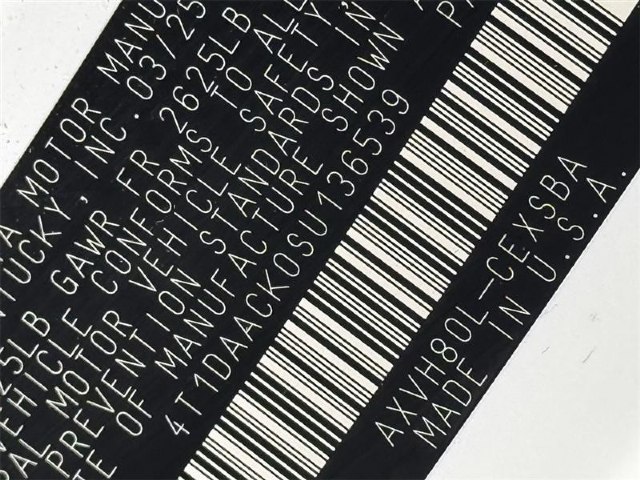 A MOTOR MANU
TUCKY, INC. 03/25
25LB GAWR FR 2625LB
VEHICLE CONFORMS TO ALL
RAL MOTOR VEHICLE SAFETY,
PREVENTION STANDARDS IN
TE OF MANUFACTURE SHOWN A
4T1DAACK0SU136539
PA
AXVH80L-CEXSBA
MADE IN U.S.A.